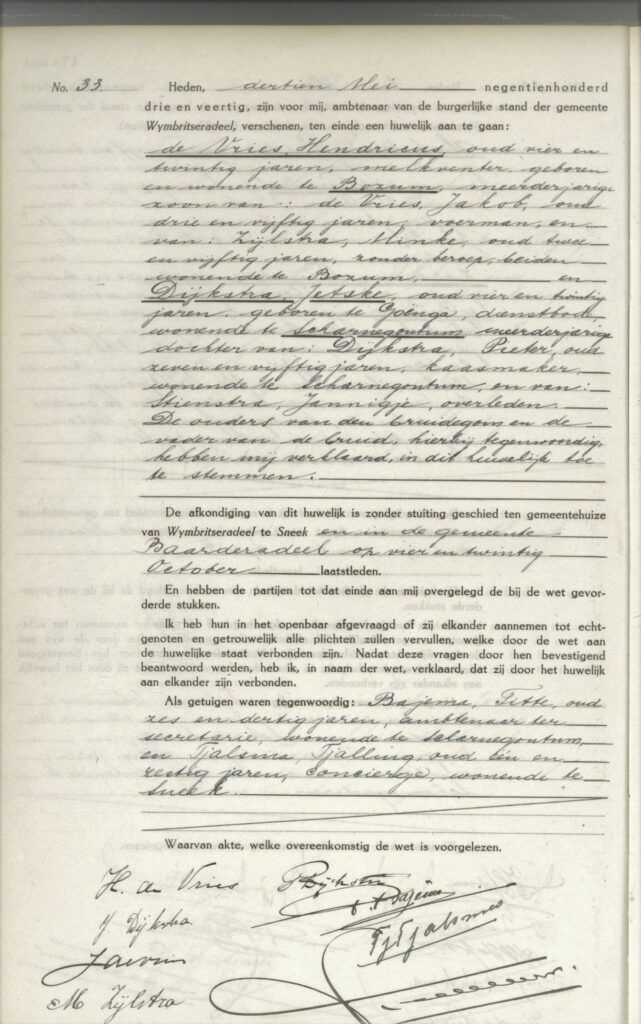 No. 33. Heden, dertien Mei negentienhonderd
drie en veertig, zijn voor mij, ambtenaar van de burgerlijke stand der gemeente
Wymbritseradeel, verschenen, ten einde een huwelijk aan te gaan:
de Vries, Hendricus, oud vier en
twintig jaren, melkventer, geboren
en wonende te Bozum, meerderjarige
zoon van: de Vries, Jakob, oud
drie en vijftig jaren, voerman, en
van: Zijlstra, Minke, oud twee
en vijftig jaren, zonder beroep, beiden
wonende te Bozum, en
Dijkstra, Jetske, oud vier en twintig
jaren, geboren te Goënga, dienstbode,
wonende te Scharnegoutum, meerderjarige
dochter van: Dijkstra, Pieter, oud
zeven en vijftig jaren, kaasmaker,
wonende te Scharnegoutum, en van:
Stienstra, Jannigje, overleden.
De ouders van den bruidegom en de
vader van de bruid, hierbij tegenwoordig,
hebben mij verklaard, in dit huwelijk toe
te stemmen.
De afkondiging van dit huwelijk is zonder stuiting geschied ten gemeentehuize
van Wymbritseradeel te Sneek en in de gemeente
Baarderadeel op vier en twintig
October laatstleden.
En hebben de partijen tot dat einde aan mij overgelegd de bij de wet gevor-
derde stukken.
Ik heb hun in het openbaar afgevraagd of zij elkander aannemen tot echt-
genoten en getrouwelijk alle plichten zullen vervullen, welke door de wet aan
de huwelijke staat verbonden zijn. Nadat deze vragen door hen bevestigend
beantwoord werden, heb ik, in naam der wet, verklaard, dat zij door het huwelijk
aan elkander zijn verbonden.
Als getuigen waren tegenwoordig: Bajema, Titte, oud
zes en dertig jaren, ambtenaar ter
secretarie, wonende te Scharnegoutum,
en Tjalsma, Tjalling, oud één en
zestig jaren, concierge, wonende te
Sneek.
Waarvan akte, welke overeenkomstig de wet is voorgelezen.
H. de Vries P Dijkstra
T. Bajema
J. Dijkstra
Tj Tjalsma
M Zijlstra